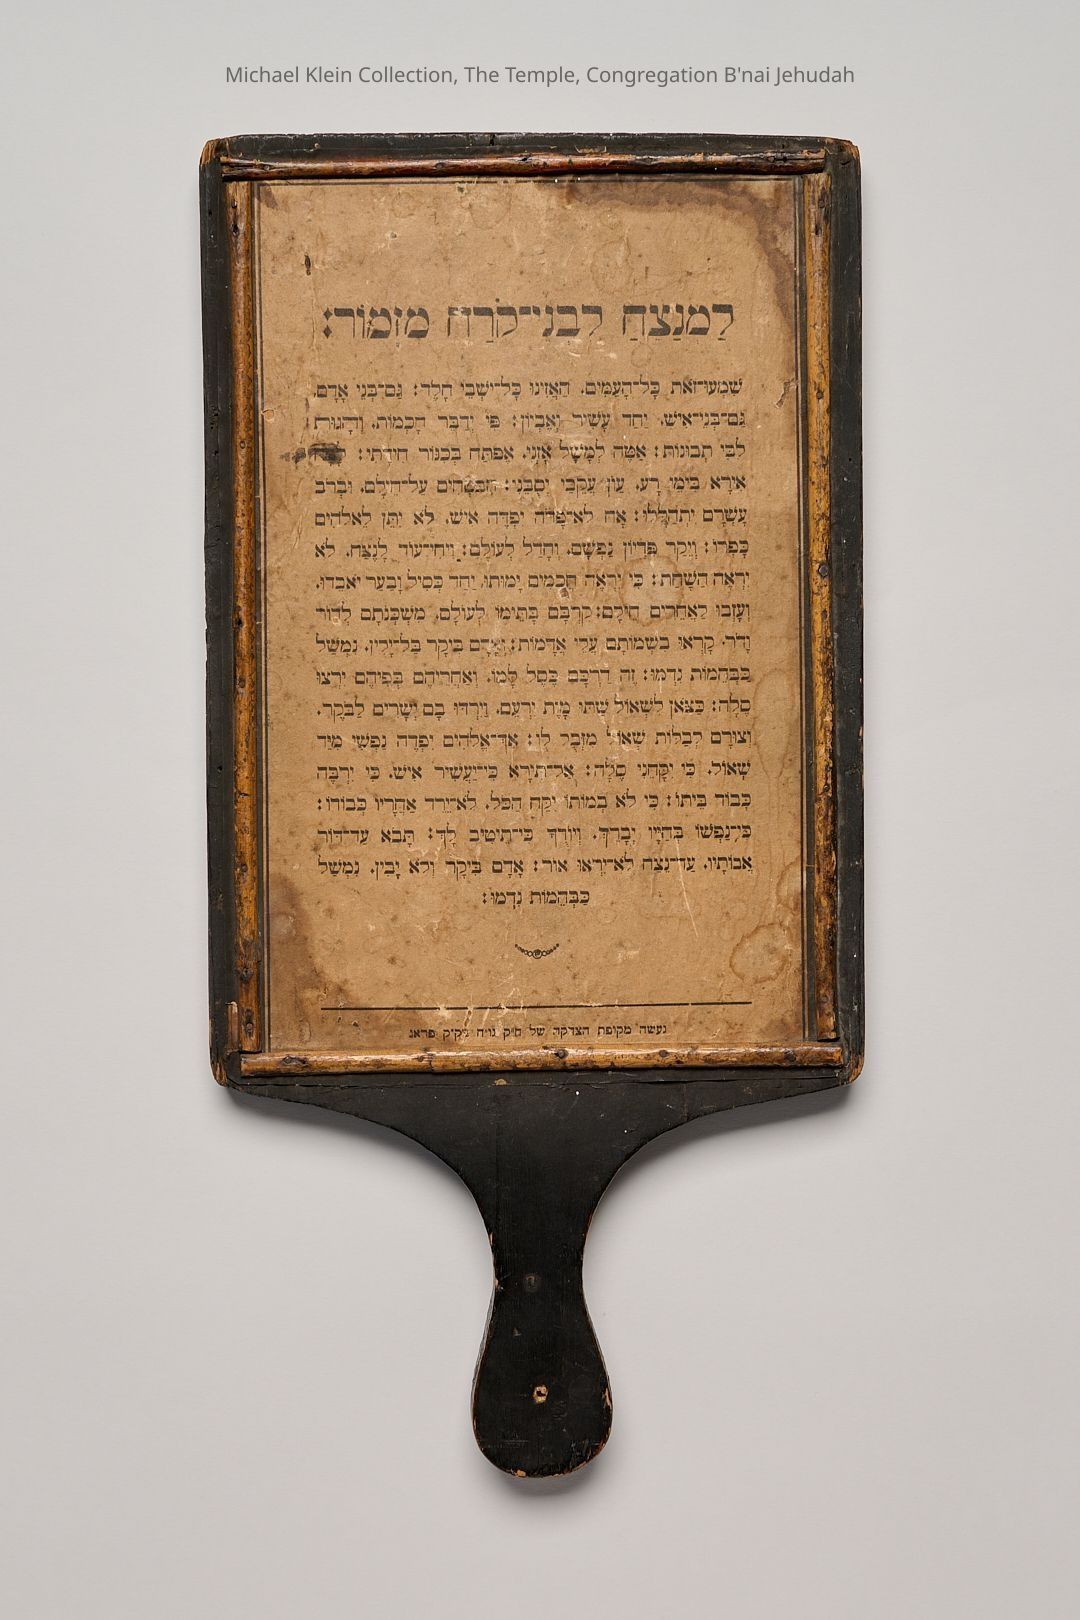 Michael Klein Collection, The Temple, Congregation B'nai Jehudah
לַמְנַצֵּחַ לִבְנֵי־קֹרַח מִזְמוֹר׃
שִׁמְעוּ־זֹאת כָּל־הָעַמִּים, הַאֲזִינוּ כָּל־ישְׁבֵי חָלֶד׃ גַּם־בְּנֵי אָדָם,
גַּם־בְּנֵי־אִישׁ, יַחַד עָשִׁיר וְאֶבְיוֹן׃ פִּי יְדַבֵּר חָכְמוֹת, וְהָגוּת
לִבִּי תְבוּנוֹת׃ אַטֶּה לְמָשָׁל אָזְנִי, אֶפְתַּח בְּכִנּוֹר חִידָתִי׃
אִירָא בִּימֵי רָע, עֲוֹן עֲקֵבַי יְסֻבֵּנִי׃ הַבֹּטְחִים עַל־חֵילָם, וּבְרֹב
עָשְׁרָם יִתְהַלָּלוּ׃ אָח לֹא־פָדֹה יִפְדֶּה אִישׁ, לֹא יִתֵּן לֵאלֹהִים
כָּפְרוֹ׃ וְיֵקַר פִּדְיוֹן נַפְשָׁם, וְחָדַל לְעוֹלָם׃ וִיחִי־עוֹד לָנֶצַח, לֹא
יִרְאֶה הַשָּׁחַת׃ כִּי יִרְאֶה חֲכָמִים יָמוּתוּ, יַחַד כְּסִיל וָבַעַר יֹאבֵדוּ,
וְעָזְבוּ לַאֲחֵרִים חֵילָם׃ קִרְבָּם בָּתֵּימוֹ לְעוֹלָם, מִשְׁכְּנֹתָם לְדוֹר
וָדֹר, קָרְאוּ בִשְׁמוֹתָם עֲלֵי אֲדָמוֹת׃ וְאָדָם בִּיקָר בַּל־יָלִין, נִמְשַׁל
כַּבְּהֵמוֹת נִדְמוּ׃ זֶה דַרְכָּם כֵּסֶל לָמוֹ, וְאַחֲרֵיהֶם בְּפִיהֶם יִרְצוּ
סֶלָה׃ כַּצֹּאן לִשְׁאוֹל שַׁתּוּ מָוֶת יִרְעֵם, וַיִּרְדּוּ בָם יְשָׁרִים לַבֹּקֶר,
וְצוּרָם לְבַלּוֹת שְׁאוֹל מִזְּבֻל לוֹ׃ אַךְ־אֱלֹהִים יִפְדֶּה נַפְשִׁי מִיַּד
שְׁאוֹל, כִּי יִקָּחֵנִי סֶלָה׃ אַל־תִּירָא כִּי־יַעֲשִׁיר אִישׁ, כִּי יִרְבֶּה
כְּבוֹד בֵּיתוֹ׃ כִּי לֹא בְמוֹתוֹ יִקַּח הַכֹּל, לֹא־יֵרֵד אַחֲרָיו כְּבוֹדוֹ׃
כִּי־נַפְשׁוֹ בְּחַיָּיו יְבָרֵךְ, וְיוֹדֻךָ כִּי־תֵיטִיב לָךְ׃ תָּבֹא עַד־דּוֹר
אֲבוֹתָיו, עַד־נֵצַח לֹא־יִרְאוּ אוֹר׃ אָדָם בִּיקָר וְלֹא יָבִין, נִמְשַׁל
כַּבְּהֵמוֹת נִדְמוּ׃
נעשה מקופת הצדקה של ח״ק גו״ח דק״ק פראג